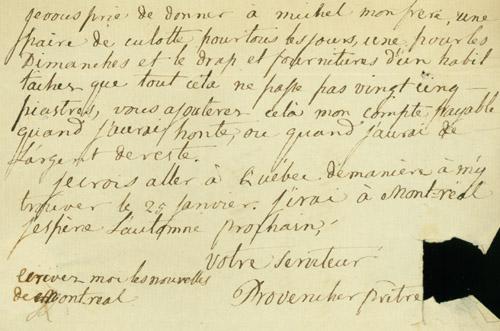 je vous prie de donner à michel mon frere, une
paire de culotte pour tous les jours, une pour les
Dimanches et le drap et fournitures d'un habit
tachez que tout cela ne passe pas vingt cinq
piastres, vous ajouterez cela mon compte, payable
quand j'aurai honte, ou quand j'aurai de
l'argent de reste.
je crois aller à Québec de maniere à m'y
trouver le 25 janvier. j'irai à Montreal
j'espère l'automne prochain,
votre serviteur
Provencher prêtre
ecrivez moi les nouvelles
de Montreal